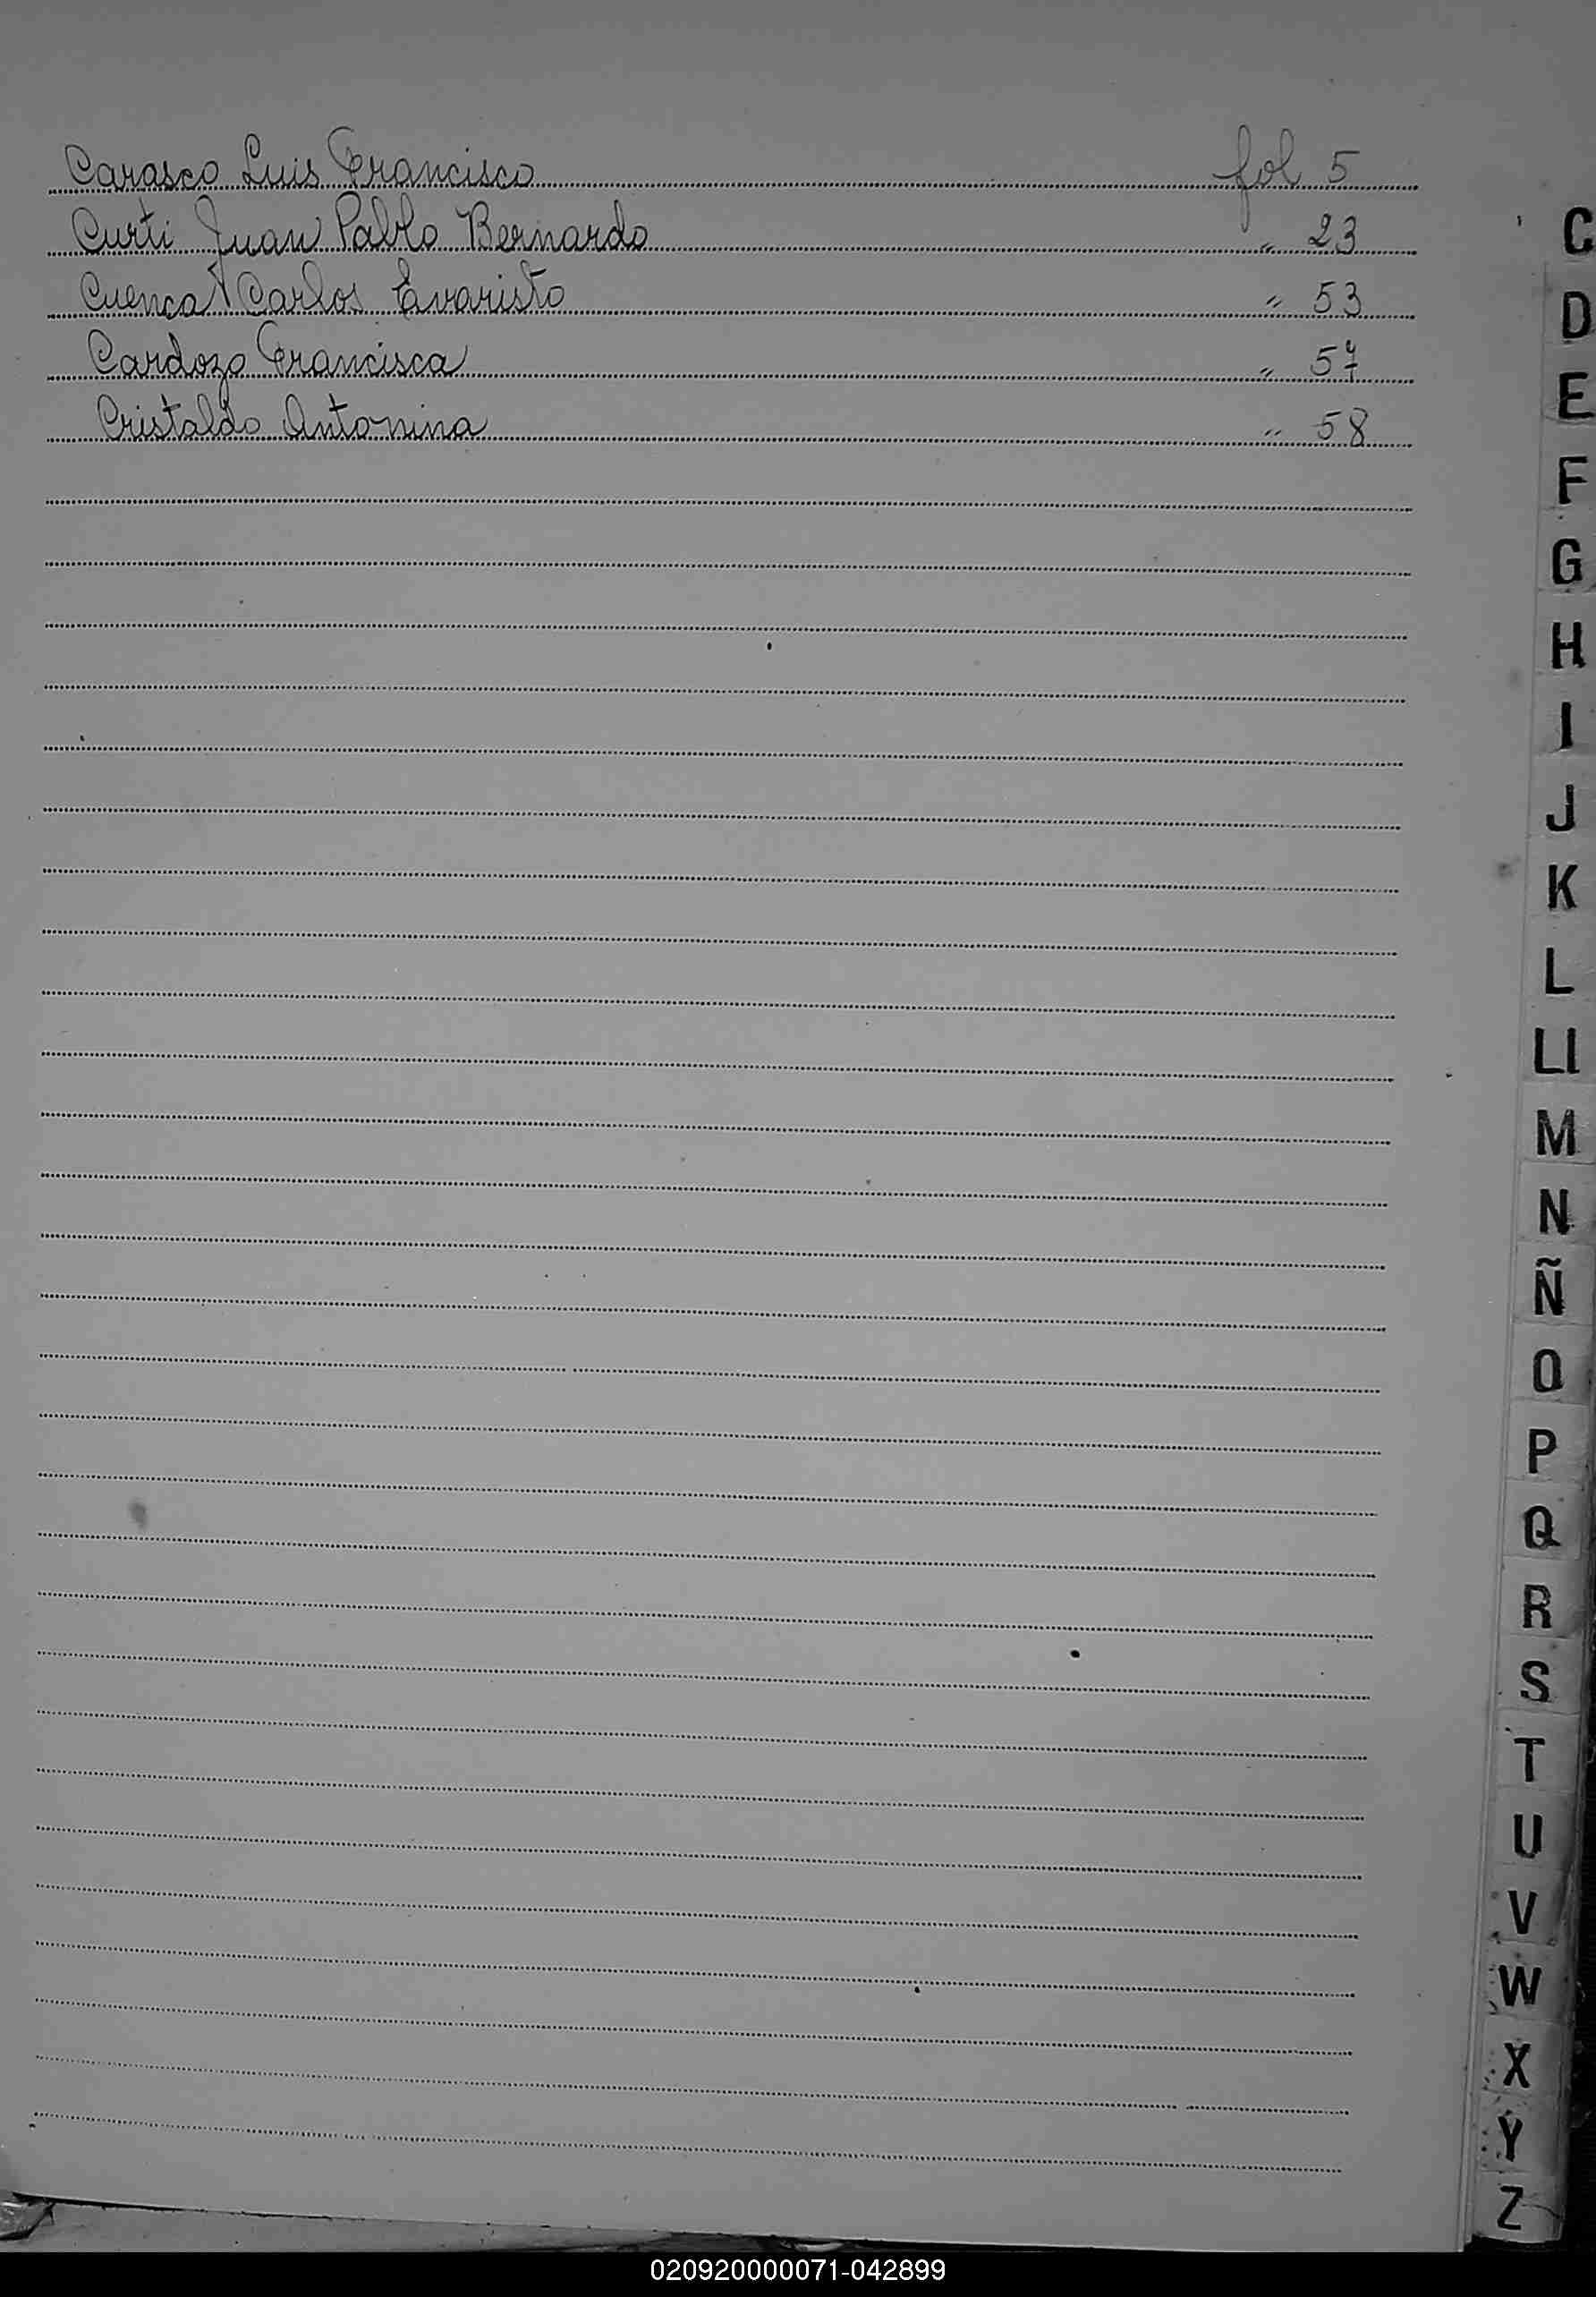 Carasco Luis Francisco fol 5
Curti Juan Pablo Bernardo " 23
Cuenca Carlos Evaristo " 53
Cardozo Francisca " 57
Cristaldo Antonina " 58
C
D
E
F
G
H
I
J
K
L
Ll
M
N
Ñ
O
P
Q
R
S
T
U
V
W
X
Y
Z
020920000071-042899